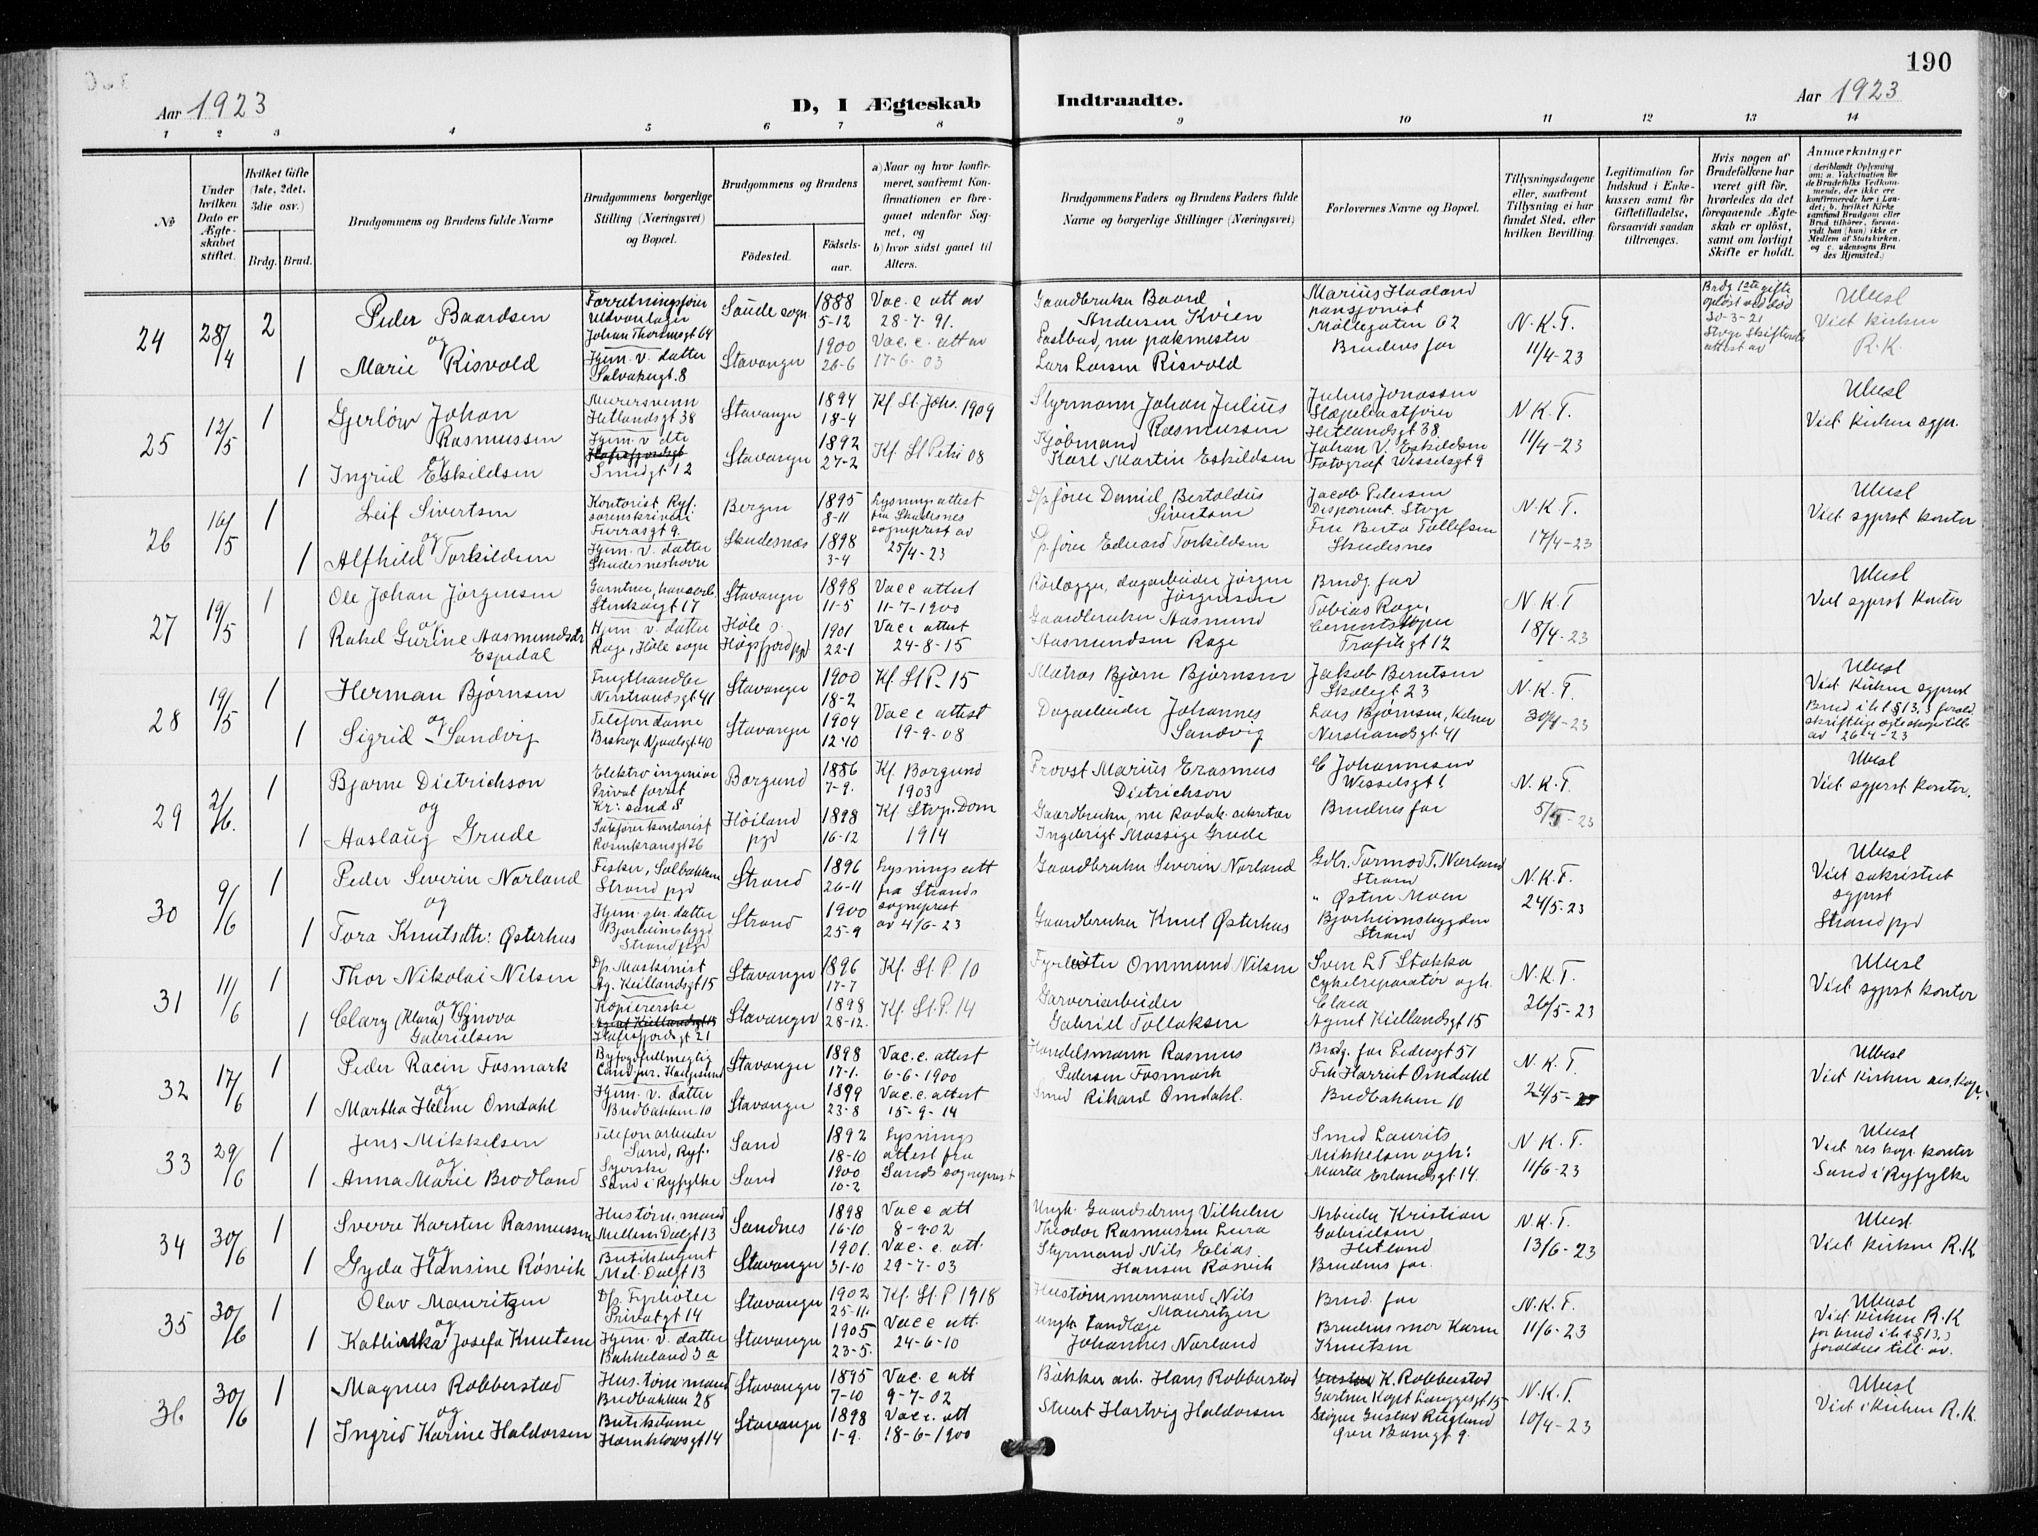 190
Aar 1923
D, I Ægteskab
Indtraadte.
Aar 1923
1 2 3 4 5 6 7 8 9 10 11 12 13 14
No
Under hvilken Dato er Ægteskabet stiftet.
Hvilket Gifte (1ste, 2det, 3die osv.)
Brdg. Brud.
Brudgommens og Brudens fulde Navne
Brudgommens borgerlige Stilling (Næringsvei) og Bopæl.
Brudgommens og Brudens
Födested.
Födselsaar.
a) Naar og hvor konfirmeret, saafremt Konfirmationen er foregaaet udenfor Sognet, og
b) hvor sidst gaaet til Alters.
Brudgommens Faders og Brudens Faders fulde Navne og borgerlige Stillinger (Næringsvei)
Forlovernes Navne og Bopæl.
Tillysningsdagene eller, saafremt Tillysning ei har fundet Sted, efter hvilken Bevilling.
Legitimation for Indskud i Enkekassen samt for Giftetilladelse, forsaavidt saadan tiltrænges.
Hvis nogen af Brudefolkene har været gift för, hvorledes da det foregaaende Ægteskab er oplöst, samt om lovligt Skifte er holdt.
Anmærkninger
(deriblandt Oplysning om: a. Vakcination for de Brudefolks Vedkommende, der ikke ere konfirmerede her i Landet; b. hvilket Kirkesamfund Brudgom eller Brud tilhörer, forsaavidt han (hun) ikke er Medlem af Statskirken, og c. udensogns Brudes Hjemsted.)
24 28/4 2 Peder Baardsen
og
1 Marie Risvold
Forretningsfører
Johan Thorsensgt 64
Hjem. v. datter
8
Saude sogn 1888 5-12
Vac. e att av 28-7-91.
Stavanger 1900 26-6
Vac. e. att av 17-6-03
Gaardbruker Baard Andersen Kvien
Postbud, nu pakmester Lars Larsen Risvold
Marius Haaland pensjonist
Møllegaten 62
Brudens far
N.K.T. 11/4-23
Brdg 1ste gifte opløst ved død 30-3-21
Ubesl
Viet kirken R.K.
25 12/5 1 Gjerløw Johan Rasmussen
og
1 Ingrid Eskildsen
Murersvenn
Hetlandsgt 38
Hjem. v dtr
Smedgt 12
Stavanger 1894 18-4 Kf. St. Johs. 1909
Stavanger 1892 27-2 Kf. St Petri 08
Styrmann Johan Julius Rasmussen
Kjøbmand Karl Martin Eskildsen
Julius Jonassen
Hetlandsgt 38
Johan V. Eskildsen
Fotograf Wesselsgt 9
N.K.T. 11/4-23
Ubesl
Viet kirken sgpr.
26 16/5 1 Leif Sivertsen
og
1 Alfhild Torkildsen
Kontorist Ryf. sorenskriveri
9
Hjem. v. datter
Skudesneshavn
Bergen 1895 8-11
Skudesnes 1898 3-4
Lysningsattest fra Skudesnes sogneprest av 25/4-23
Dp.fører Daniel Bertoldus Sivertsen
Dp.fører Edvard Torkildsen
Jacob Petersen
Disponent. Stvgr
Fru Berta Tollefsen
Skudesnes
N.K.T. 17/4-23
Ubesl
Viet sgprst kontor
27 19/5 1 Ole Johan Jørgensen
og
1 Rakel Gurine Aasmundsdtr Espedal
Gartner, havearb.
17
Hjem. v. datter
Rage, Høle sogn
Stavanger 1898 11-5 Vac e attest 11-7-1900
Høle s. Høgsfjord pgd 1901 22-1 Vac e attest 24-8-15
Rørlægger, dagarbeider Jørgen Jørgensen
Gaardbruker Aasmund Aasmundsen Rage
Brudg. far
Tobias Rage,
12
N.K.T 18/4-23
Ubesl
Viet sgprst kontor
28 19/5 1 Herman Bjørnsen
og
1 Sigrid Sandvig
Frugthandler
Nerstrandsgt 41
Telefondame
Biskop Njaalsgt 40
Stavanger 1900 18-2 Kf. St. P. 15
Stavanger 1904 12-10 Vac e attest 19-9-08
Matros Bjørn Bjørnsen
Dagarbeider Johannes Sandvig
Jakob Berntsen
Skolegt 23
Lars Bjørnsen, Kelner
Nerstrandsgt 41
N.K.T. 30/4-23
Ubesl
Viet Kirken sgprst
Brud i h t § 13,3 foreld skriftlige egteskapstill. av 26-4-23
29 2/6. 1 Bjarne Dietrichson
og
1 Aaslaug Grude
Elektroingeniør
Kr: sand S
Sakførerkontorist
Rosenkransgt 26
Borgund 1886 7-9. Kf. Borgund 1903
Høiland pgd 1898 16-12 Kf. Stvgr. Dom 1914
Provst Marius Erasmus Dietrichson
Gaardbruker, nu Ingebrigt Massige Grude
C Johannesen
Wesselsgt 1
Brudens far
N.K.T. 5/5-23
Ubesl
Viet sgprst kontor.
30 9/6 1 Peder Severin Norland
og
1 Tora Knutsdtr: Østerhus
Fisker, Solbakken
Strand pgd
Hjem. gbr. datter
Bjørheimsbygd
Strand pgd
Strand 1896 26-11
Strand 1900 25-9
Lysnings att fra Strands sogneprest av 4/6-23
Gaardbruker Severin Norland
Gaardbruker Knut Østerhus
Gdbr. Tormod T. Norland
Strand
" Østen Moen
Bjørheimsbygden
Strand
N.K.T. 24/5-23
Ubesl
Viet sakristiet sgprst
Strand pgd
31 11/6 1 Thor Nikolai Nilsen
og
1 Clary (Klara) Synova Gabrielsen
Dp. Maskinist
Ag. Kiellandsgt 15
Kopiererske
Hafrsfjordgt 21
Stavanger 1896 17-7 Kf. St. P. 10
Stavanger 1898 28-12. Kf. St. P. 14
Fyrbøter Ommund Nilsen
Garveriarbeider Gabriel Tollaksen
Sven L T Stokka
Cykelreparatør og h.
Clara
Agnet Kiellandsgt 15
N.K.T. 26/5-23
Ubesl
Viet sgprst kontor
32 17/6 1 Peder Racin Fosmark
og
1 Martha Helene Omdahl
Byfogdfullmegtig
Cand. jur. Haugesund
Hjem. v. datter
Bredbakken 10
Stavanger 1898 17-1. Vac. e. attest 6-6-1900
Stavanger 1899 23-8 Vac. e. attest 15-9-14
Handelsmann Rasmus Pedersen Fosmark
Smed Rikard Omdahl.
Brdg. far Pedersgt 51
Frk Harriet Omdahl
Bredbakken 10
N.K.T. 24/5-23
Ubesl
Viet kirken res. kap.
33 29/6 1 Jens Mikkelsen
og
1 Anna Marie Brodland
Telefonarbeider
Sand, Ryf.
Syerske
Sand i Ryfylke
Sand 1892 18-10
Sand 1900 10-2
Lysnings attest fra Sands sogneprest
Smed Laurits Mikkelsen og h:
Marta Erlandsgt 14.
N.K.T. 11/6-23
Ubesl
Viet res kap. kontor
Sand i Ryfylke
34 30/6 1 Sverre Karsten Rasmussen
og
1 Gyda Hansine Røsvik
Hustømmermand
Mellem Dalgt 13
Butikbetjent
Mel. Dalgt 13
Sandnes 1898 16-10 Vac e att 8-9-02
Stavanger 1901. 31-10 Vac. e. att. 29-7-03
Ungk. Gaardsdreng Vilhelm Theodor Rasmussen Lura
Styrmand Nils Elias Hansen Røsvik
Arbeider Kristian Gabrielsen
Hetland
Brudens far.
N.K.T. 13/6-23
Ubesl
Viet kirken R.K
35 30/6 1 Olav Mauritzen
og
1 Kathinka Josefa Knutsen
Dp. Fyrbøter
Privatgt 14
Hjem. v. datter
Bakkeland 3 a
Stavanger 1902 25-11. Kf. St. P 1918
Stavanger 1905 23-5. Vac e att. 24-6-10
Hustømmermand Nils Mauritzen
ungk. tandlæge Johannes Norland
Brud. far
Brudens mor Karen Knutsen
N.K.T. 11/6-23
Ubesl
Viet kirken R.K
for brud i h t § 13,3 foreldres till. av.
36 30/6 1 Magnus Robberstad
og
1 Ingrid Karine Haldorsen
Hus. tømmermand
Bredbakken 28
Butikdame
Hornklovsgt 14
Stavanger 1895 7-10 Vac. e att 9-7-02
Stavanger 1898 1-9. Vac e. att 18-6-1900
Bøkker arb. Hans Robberstad
Stuert Hartvig Haldorsen
Gustav K. Robberstad
Gartner
Gustav Rugland
9.
N.K.T. 10/4-23
Ubesl
Viet i kirken R.K.